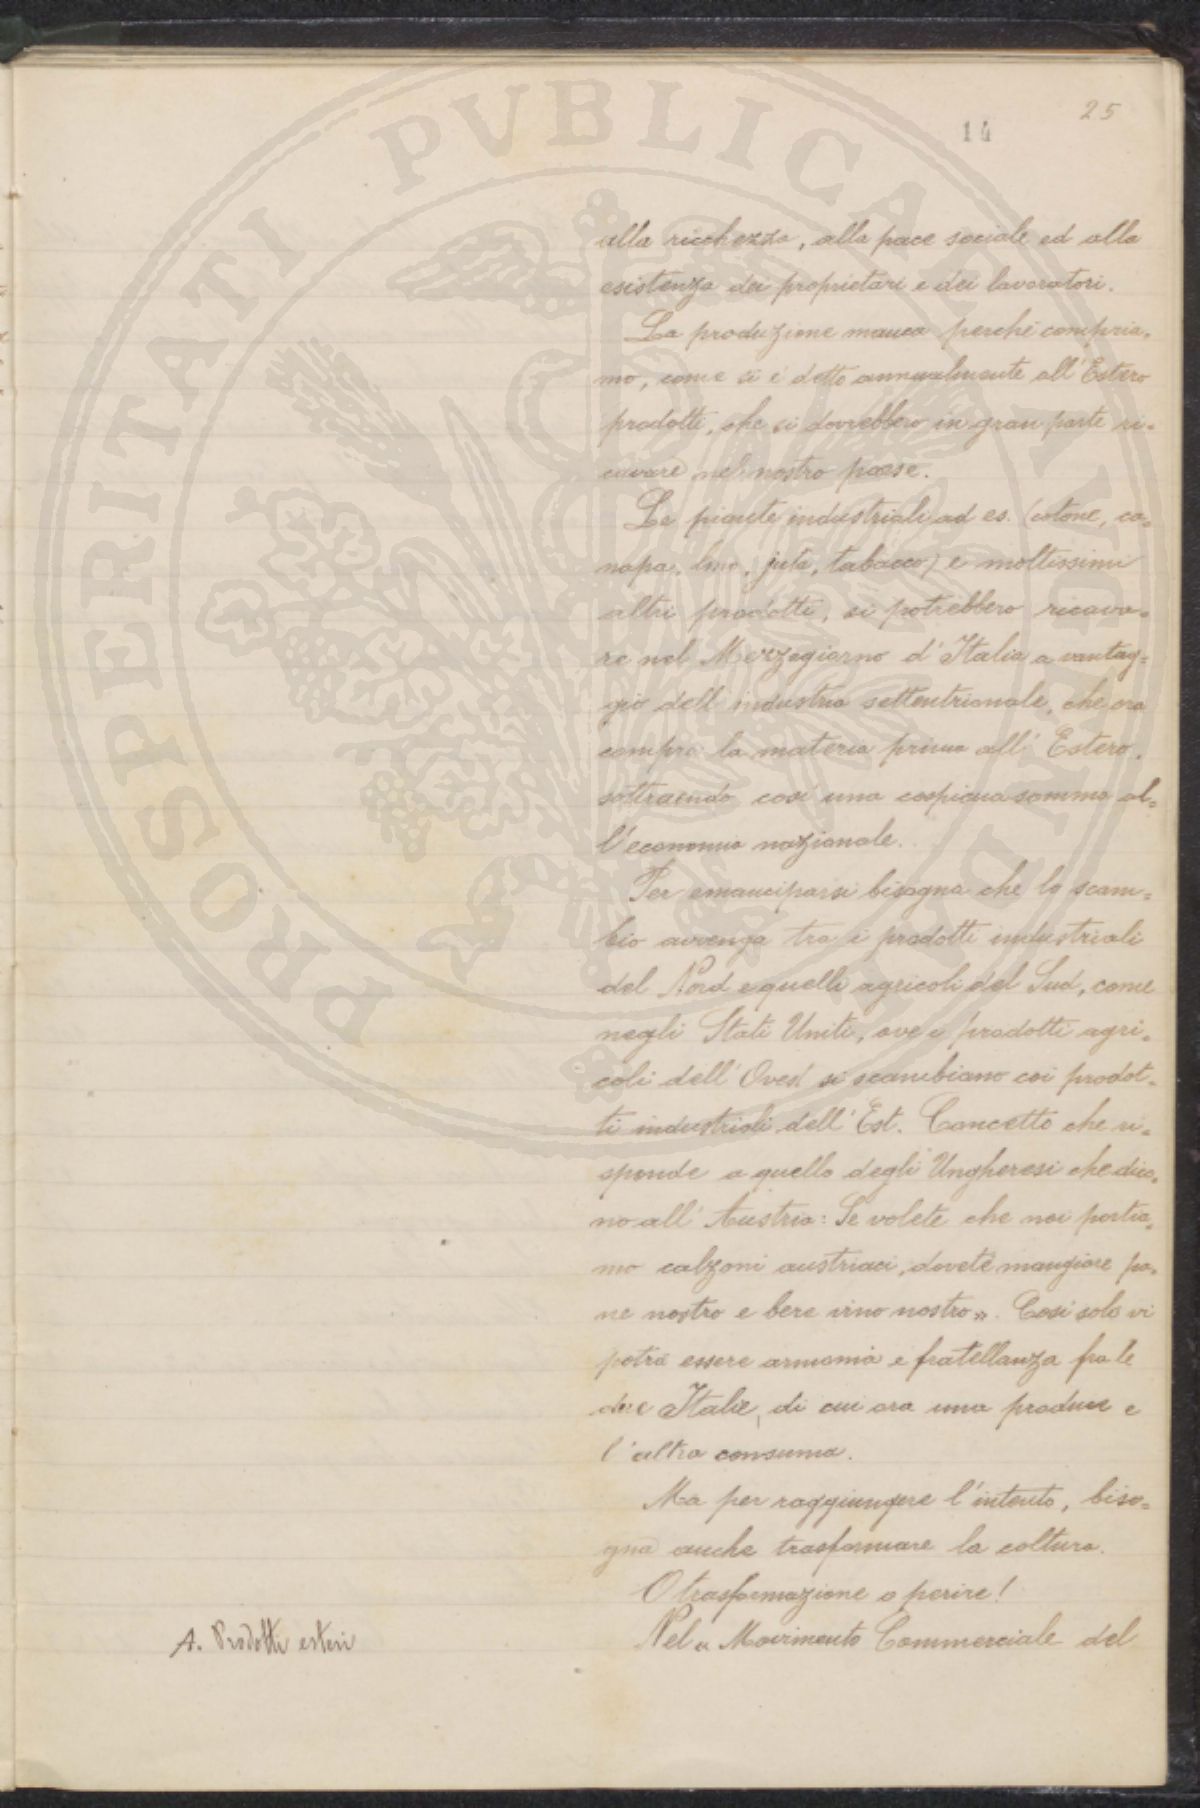 25
14
alla ricchezza, alla pace sociale ed alla
esistenza dei proprietari e dei lavoratori.
La produzione manca perchè compria-
mo, come si è detto annualmente all'Estero
prodotti, che si dovrebbero in gran parte ri-
cavare nel nostro paese.
Le piante industriali ad es. (cotone, ca-
napa, lino, juta, tabacco) e moltissimi
altri prodotti, si potrebbero ricava-
re nel Mezzogiorno d'Italia a vantag-
gio dell'industria settentrionale, che ora
compra la materia prima all'Estero,
sottraendo così una cospicua somma al-
l'economia nazionale.
Per emanciparsi bisogna che lo scam-
bio avvenga tra i prodotti industriali
del Nord e quelli agricoli del Sud, come
negli Stati Uniti, ove i prodotti agri-
coli dell'Ovest si scambiano coi prodot-
ti industriali dell'Est. Concetto che ri-
sponde a quello degli Ungheresi che dico-
no all'Austria: Se volete che noi portia-
mo calzoni austriaci, dovete mangiare pa-
ne nostro e bere vino nostro». Così solo vi
potrà essere armonia e fratellanza fra le
due Italie, di cui ora una produce e
l'altra consuma.
Ma per raggiungere l'intento, biso-
gna anche trasformare la coltura.
O trasformazione o perire!
A. Prodotti esteri
Nel « Movimento Commerciale del
PROSPERITATI PUBLICAE AUGENDAE